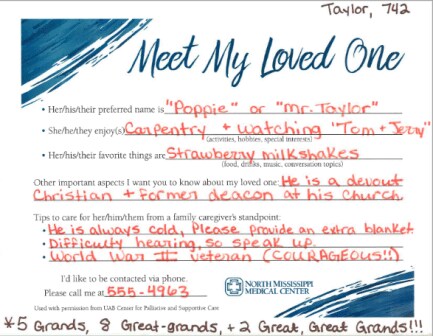 Taylor, 742
Meet My Loved One
• Her/his/their preferred name is "Poppie" or "Mr. Taylor"
• She/he/they enjoy(s) Carpentry + watching "Tom + Jerry"
(activities, hobbies, special interests)
• Her/his/their favorite things are Strawberry milkshakes
(food, drinks, music, conversation topics)
Other important aspects I want you to know about my loved one: He is a devout
Christian + former deacon at his church.
Tips to care for her/him/them from a family caregiver's standpoint:
• He is always cold, Please provide an extra blanket
• Difficulty hearing, so speak up.
• World War II veteran (COURAGEOUS!!)
I'd like to be contacted via phone.
Please call me at 555-4963
NORTH MISSISSIPPI
MEDICAL CENTER
Used with permission from UAB Center for Palliative and Supportive Care
*5 Grands, 8 Great-grands, + 2 Great, Great Grands!!!